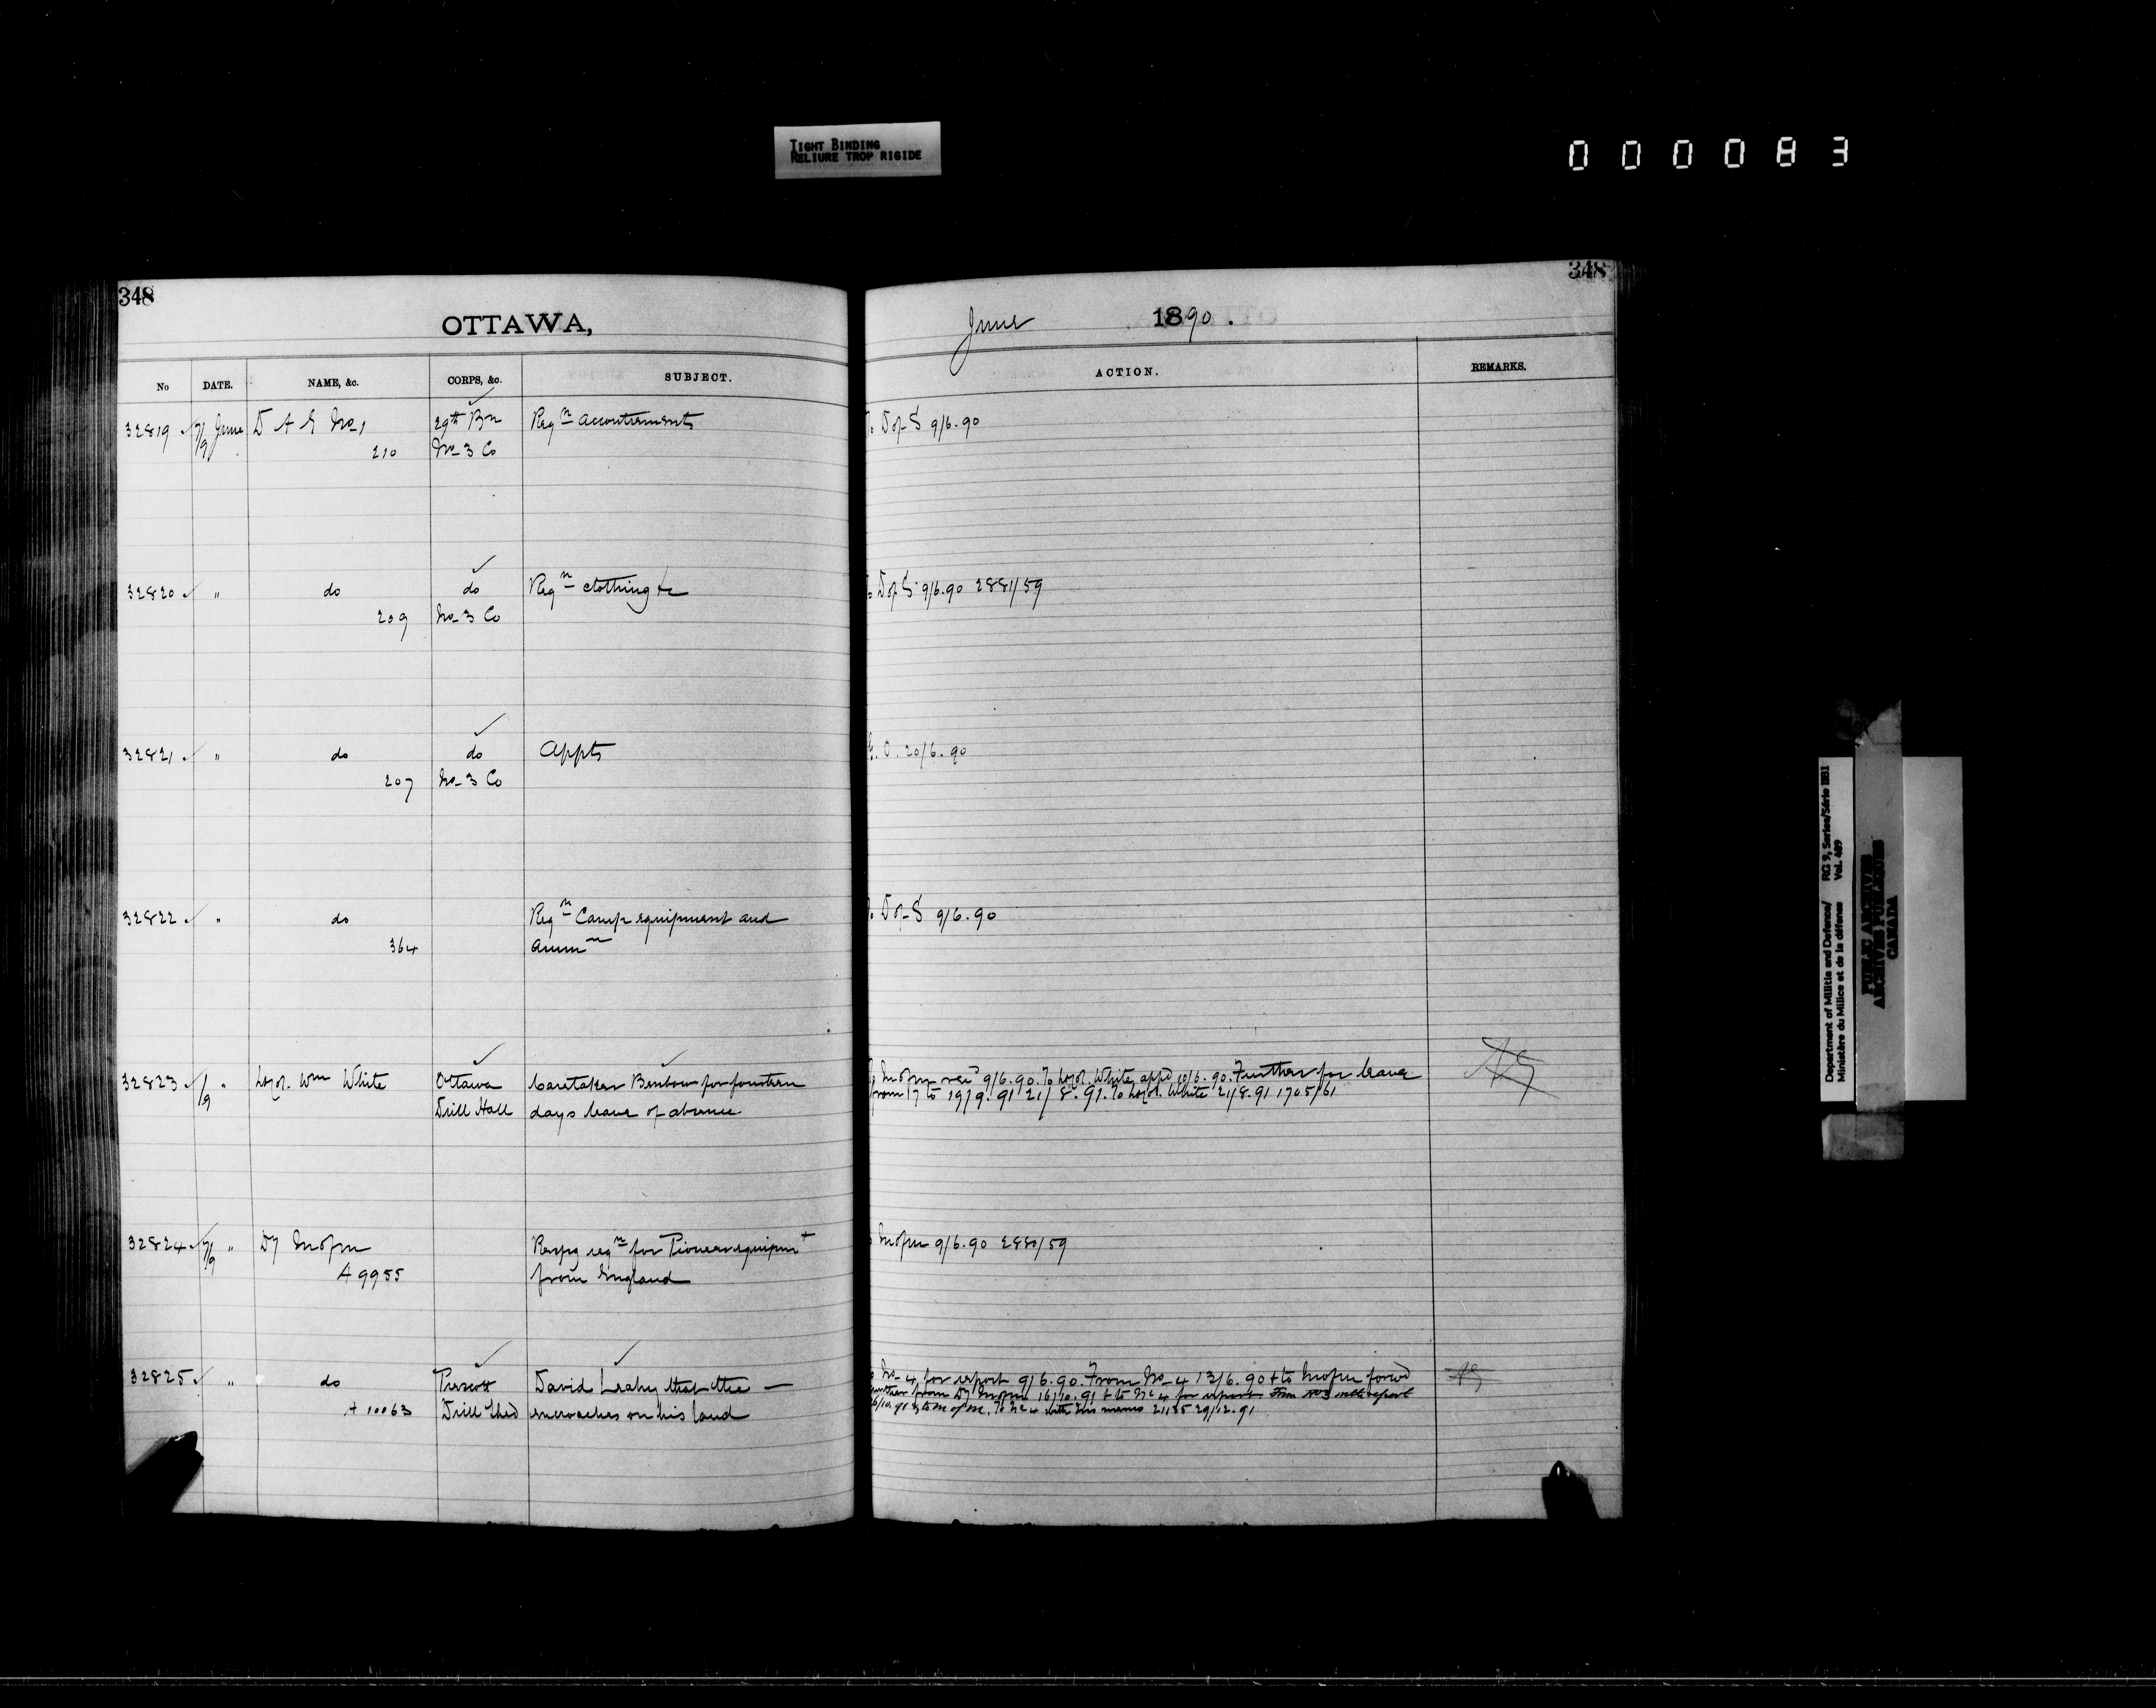 TIGHT BINDING
RELIURE TROP RIGIDE
000083
348
348
OTTAWA,
June 1890.
No DATE. NAME, &c. CORPS, &c. SUBJECT. ACTION. REMARKS.
32819 7/9 June D A G No 1 29th Bn Reqn accoutrements To D of S 9/6.90
210 No 3 Co
32820 " do do Reqn clothing &c To D of S 9/6.90 2881/59
209 No 3 Co
32821 " do do Appts G.O. 20/6.90
207 No 3 Co
32822 " do Reqn Camp equipment and To D of S 9/6.90
364 ammn
32823 /9 " Wm White Ottawa Caretaker Benbow for fourteen 9/6.90. To White appd 10/6.90. Further for leave
Drill Hall days leave of absence from 17 to 19/9.91 21/8.91. To White 21/8.91 1705/61
32824 7/9 " Dy M of M Respg reqn for Pioneer equipmt M of M 9/6.90 2880/59
A 9955 from England
32825 " do Prescott David Leahy that the — No 4 for report 9/6.90. From No 4 13/6.90 & to M of M forwd
A 10063 Drill Shed encroaches on his land further from Dy M of M 16/10.91 & to No 4 for report From No 3 with report
to M of M. To No 4 with memo 21135 29/12.91
Department of Militia and Defence/ RG 9, Series/Série IIB1
Ministère du Milice et de la défense Vol. 489
PUBLIC ARCHIVES
ARCHIVES PUBLIQUES
CANADA